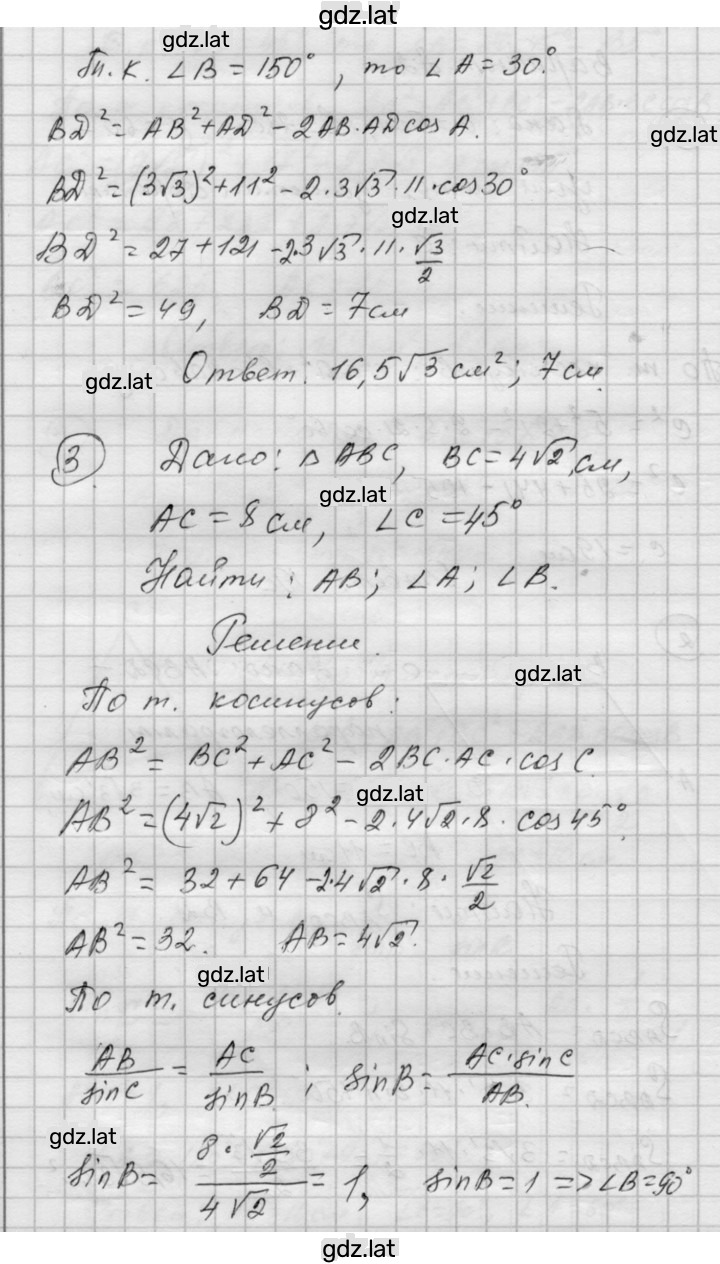 gdz.lat
gdz.lat
Т.к. ∠B = 150°, то ∠A = 30°.
BD² = AB² + AD² - 2AB·AD cos A.
gdz.lat
BD² = (3√3)² + 11² - 2·3√3·11·cos30°
gdz.lat
BD² = 27 + 121 - 2·3√3·11·√3/2
BD² = 49, BD = 7см
Ответ: 16,5√3 см²; 7см.
gdz.lat
3 Дано: △ABC, BC = 4√2 см,
gdz.lat
AC = 8 см, ∠C = 45°
Найти: AB; ∠A; ∠B.
Решение.
gdz.lat
По т. косинусов:
AB² = BC² + AC² - 2BC·AC·cos C.
gdz.lat
AB² = (4√2)² + 8² - 2·4√2·8·cos45°.
AB² = 32 + 64 - 2·4√2·8·√2/2
AB² = 32. AB = 4√2.
gdz.lat
По т. синусов.
AB/sinC = AC/sinB; sinB = AC·sinC/AB.
gdz.lat
sinB = (8·√2/2)/(4√2) = 1, sinB = 1 => ∠B = 90°
gdz.lat